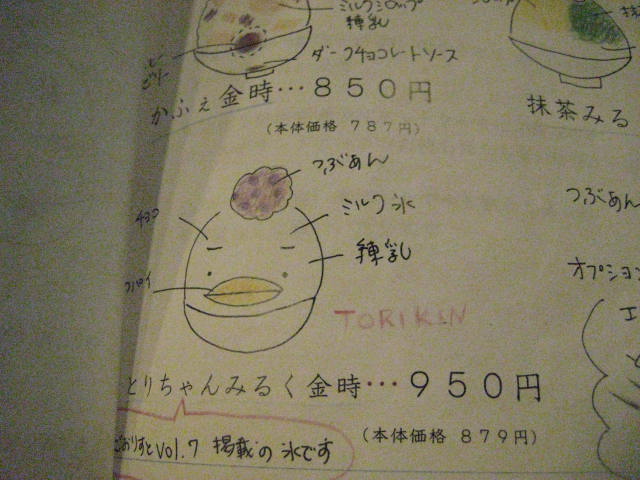 ミルクシロップ
練乳
ダークチョコレートソース
かふぇ金時…８５０円
(本体価格 ７８７円)
抹茶みる
つぶあん
つぶあん
チョコ
ミルク氷
練乳
パイ
オプション
TORIKIN
とりちゃんみるく金時…９５０円
(本体価格 ８７９円)
ごおりすとvol.7 掲載の氷です